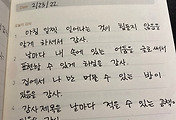 2/23/22
1. 아침 일찍 일어나는 것이 힘들지 않음을
알게 하셔서 감사.
2. 날마다 내 속에 있는 어둠을 글로써서
표현할 수 있게 하심을 감사.
3. 집에서 나만 머물 수 있는 방이
있음을 감사.
4. 감사제목을 날마다 적을 수 있는